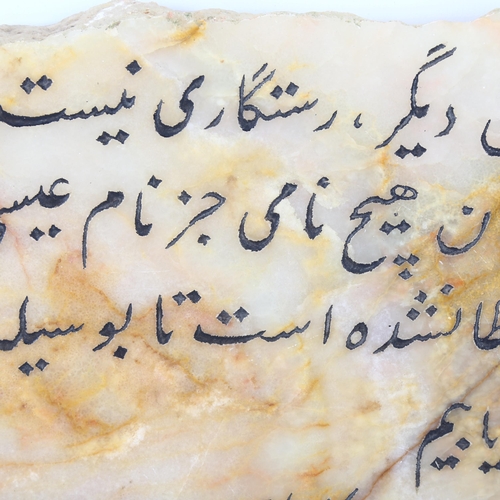 دیگر، رستگاری نیست
ن هیچ نامی جز نام عیسی
طا نشده است تا بوسیله
یابیم